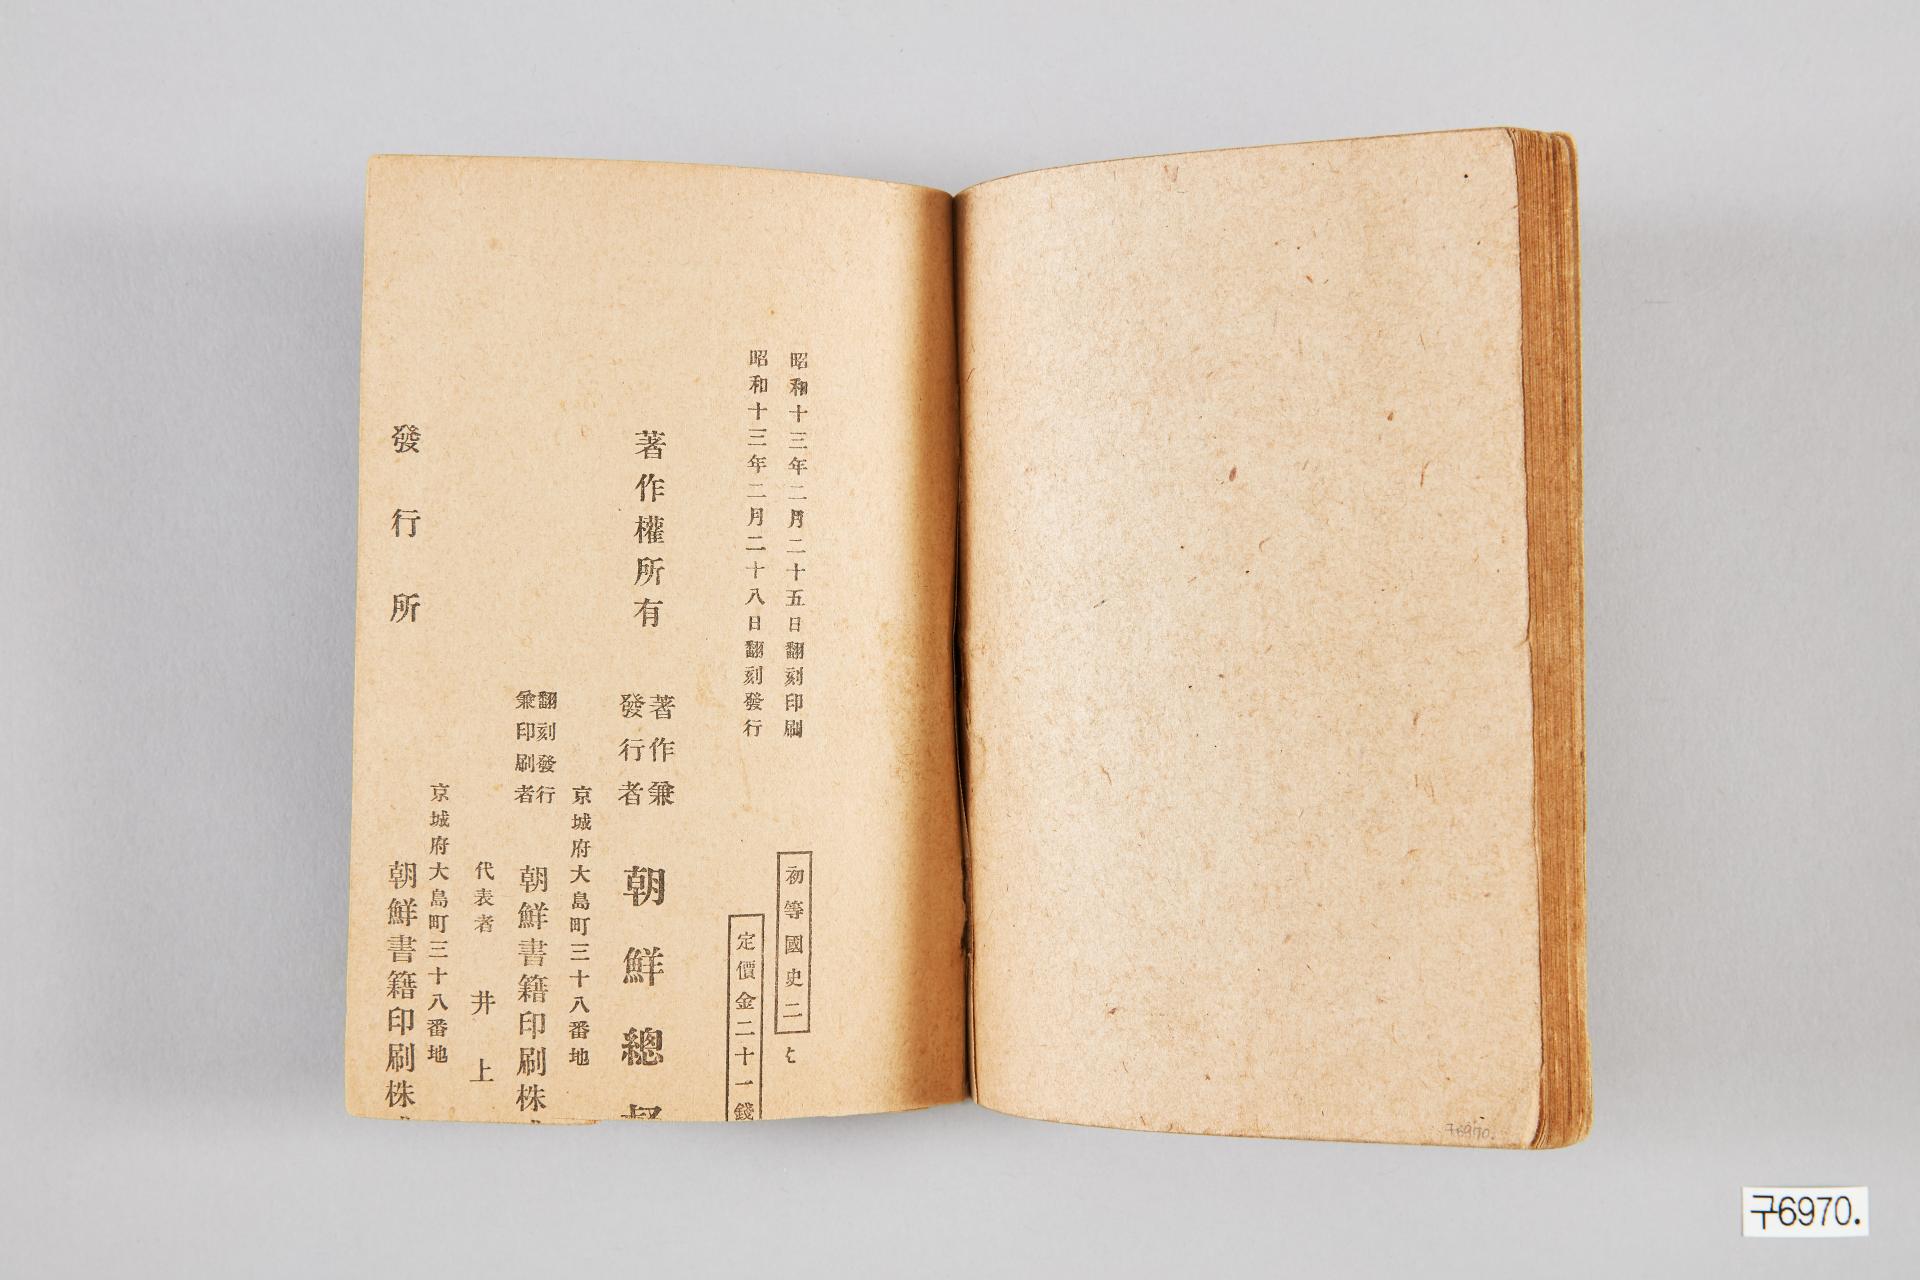 昭和十三年二月二十五日翻刻印刷
昭和十三年二月二十八日翻刻發行
初等國史二
と
定價金二十一錢
著作權所有
著作兼
發行者
朝鮮總督
京城府大島町三十八番地
翻刻發行
兼印刷者
朝鮮書籍印刷株
代表者 井上
京城府大島町三十八番地
發行所
朝鮮書籍印刷株
구6970.
구6970.